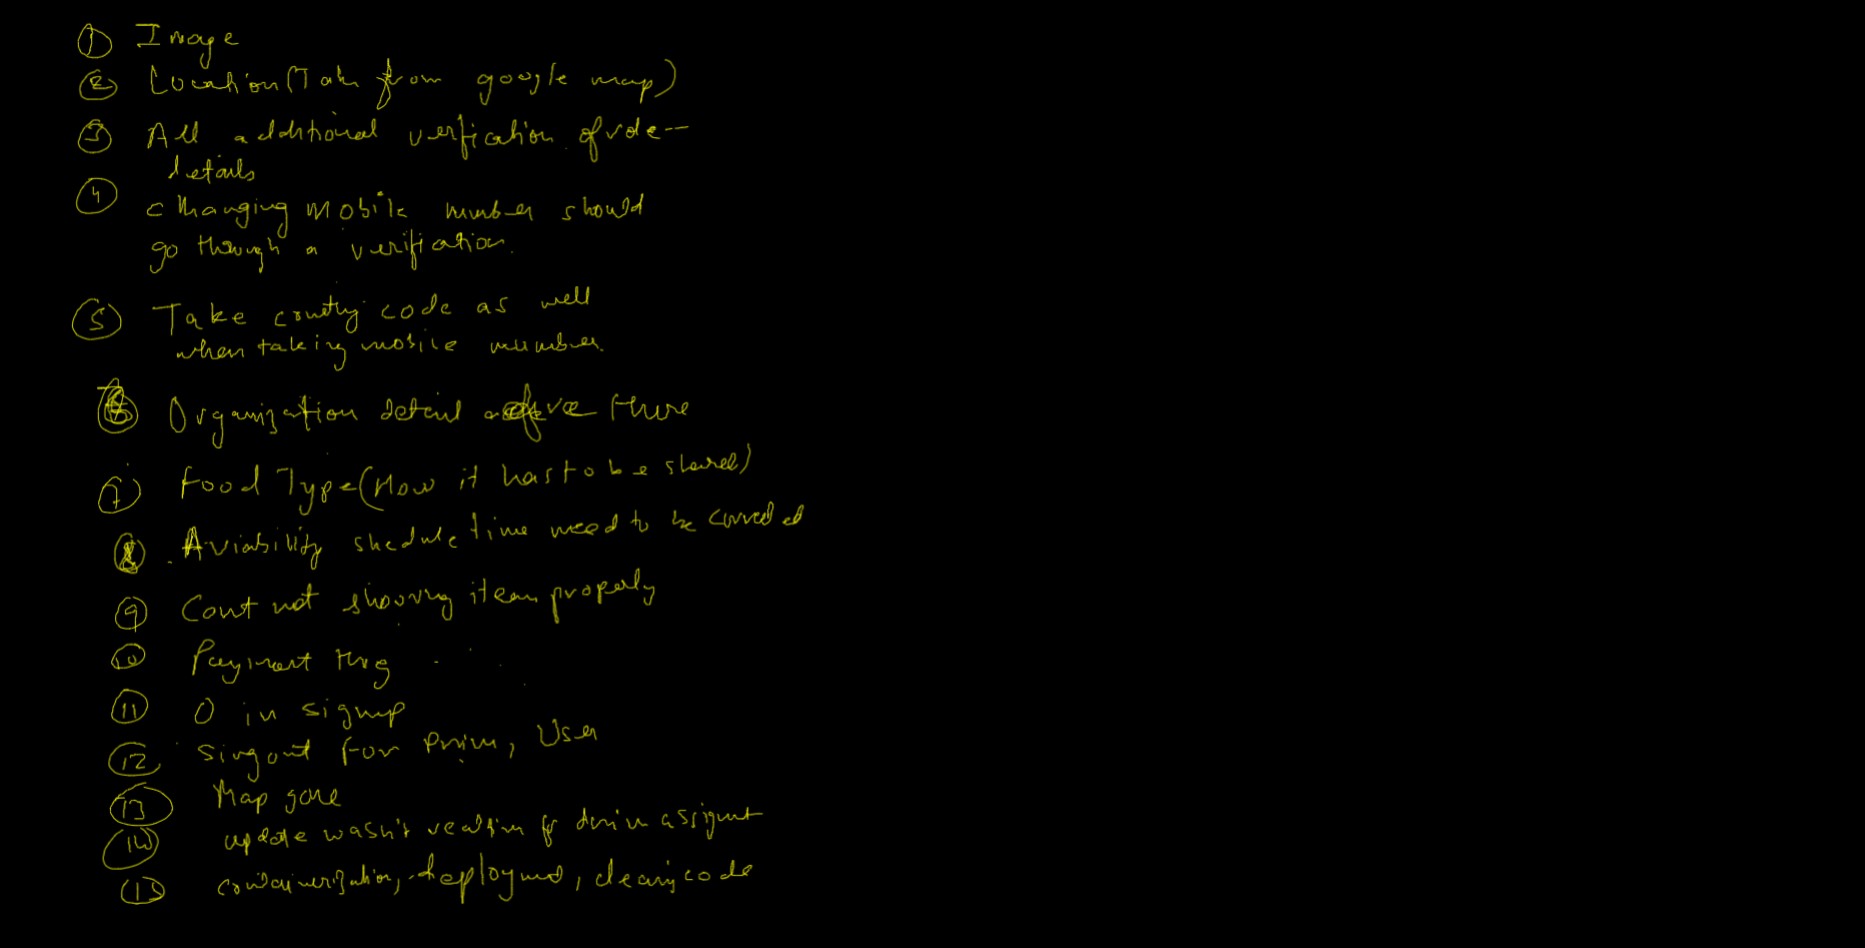 ① Image
② Location (Take from google map)
③ All additional verfication of role--
details
④
changing mobile number should
go through a verification.
⑤ Take country code as well
when taking mobile number.
⑥ Organization detail there
⑦ Food Type (How it has to be shared)
⑧ Aviability shedule time need to be corrected
⑨ Cart not showing item properly
⑩ Payment
⑪ O in signup
⑫ Singout for Driver, User
⑬ Map gone
⑭ update wasn't realtime for driver assignment
⑮ containerization, deployment, cleaning code